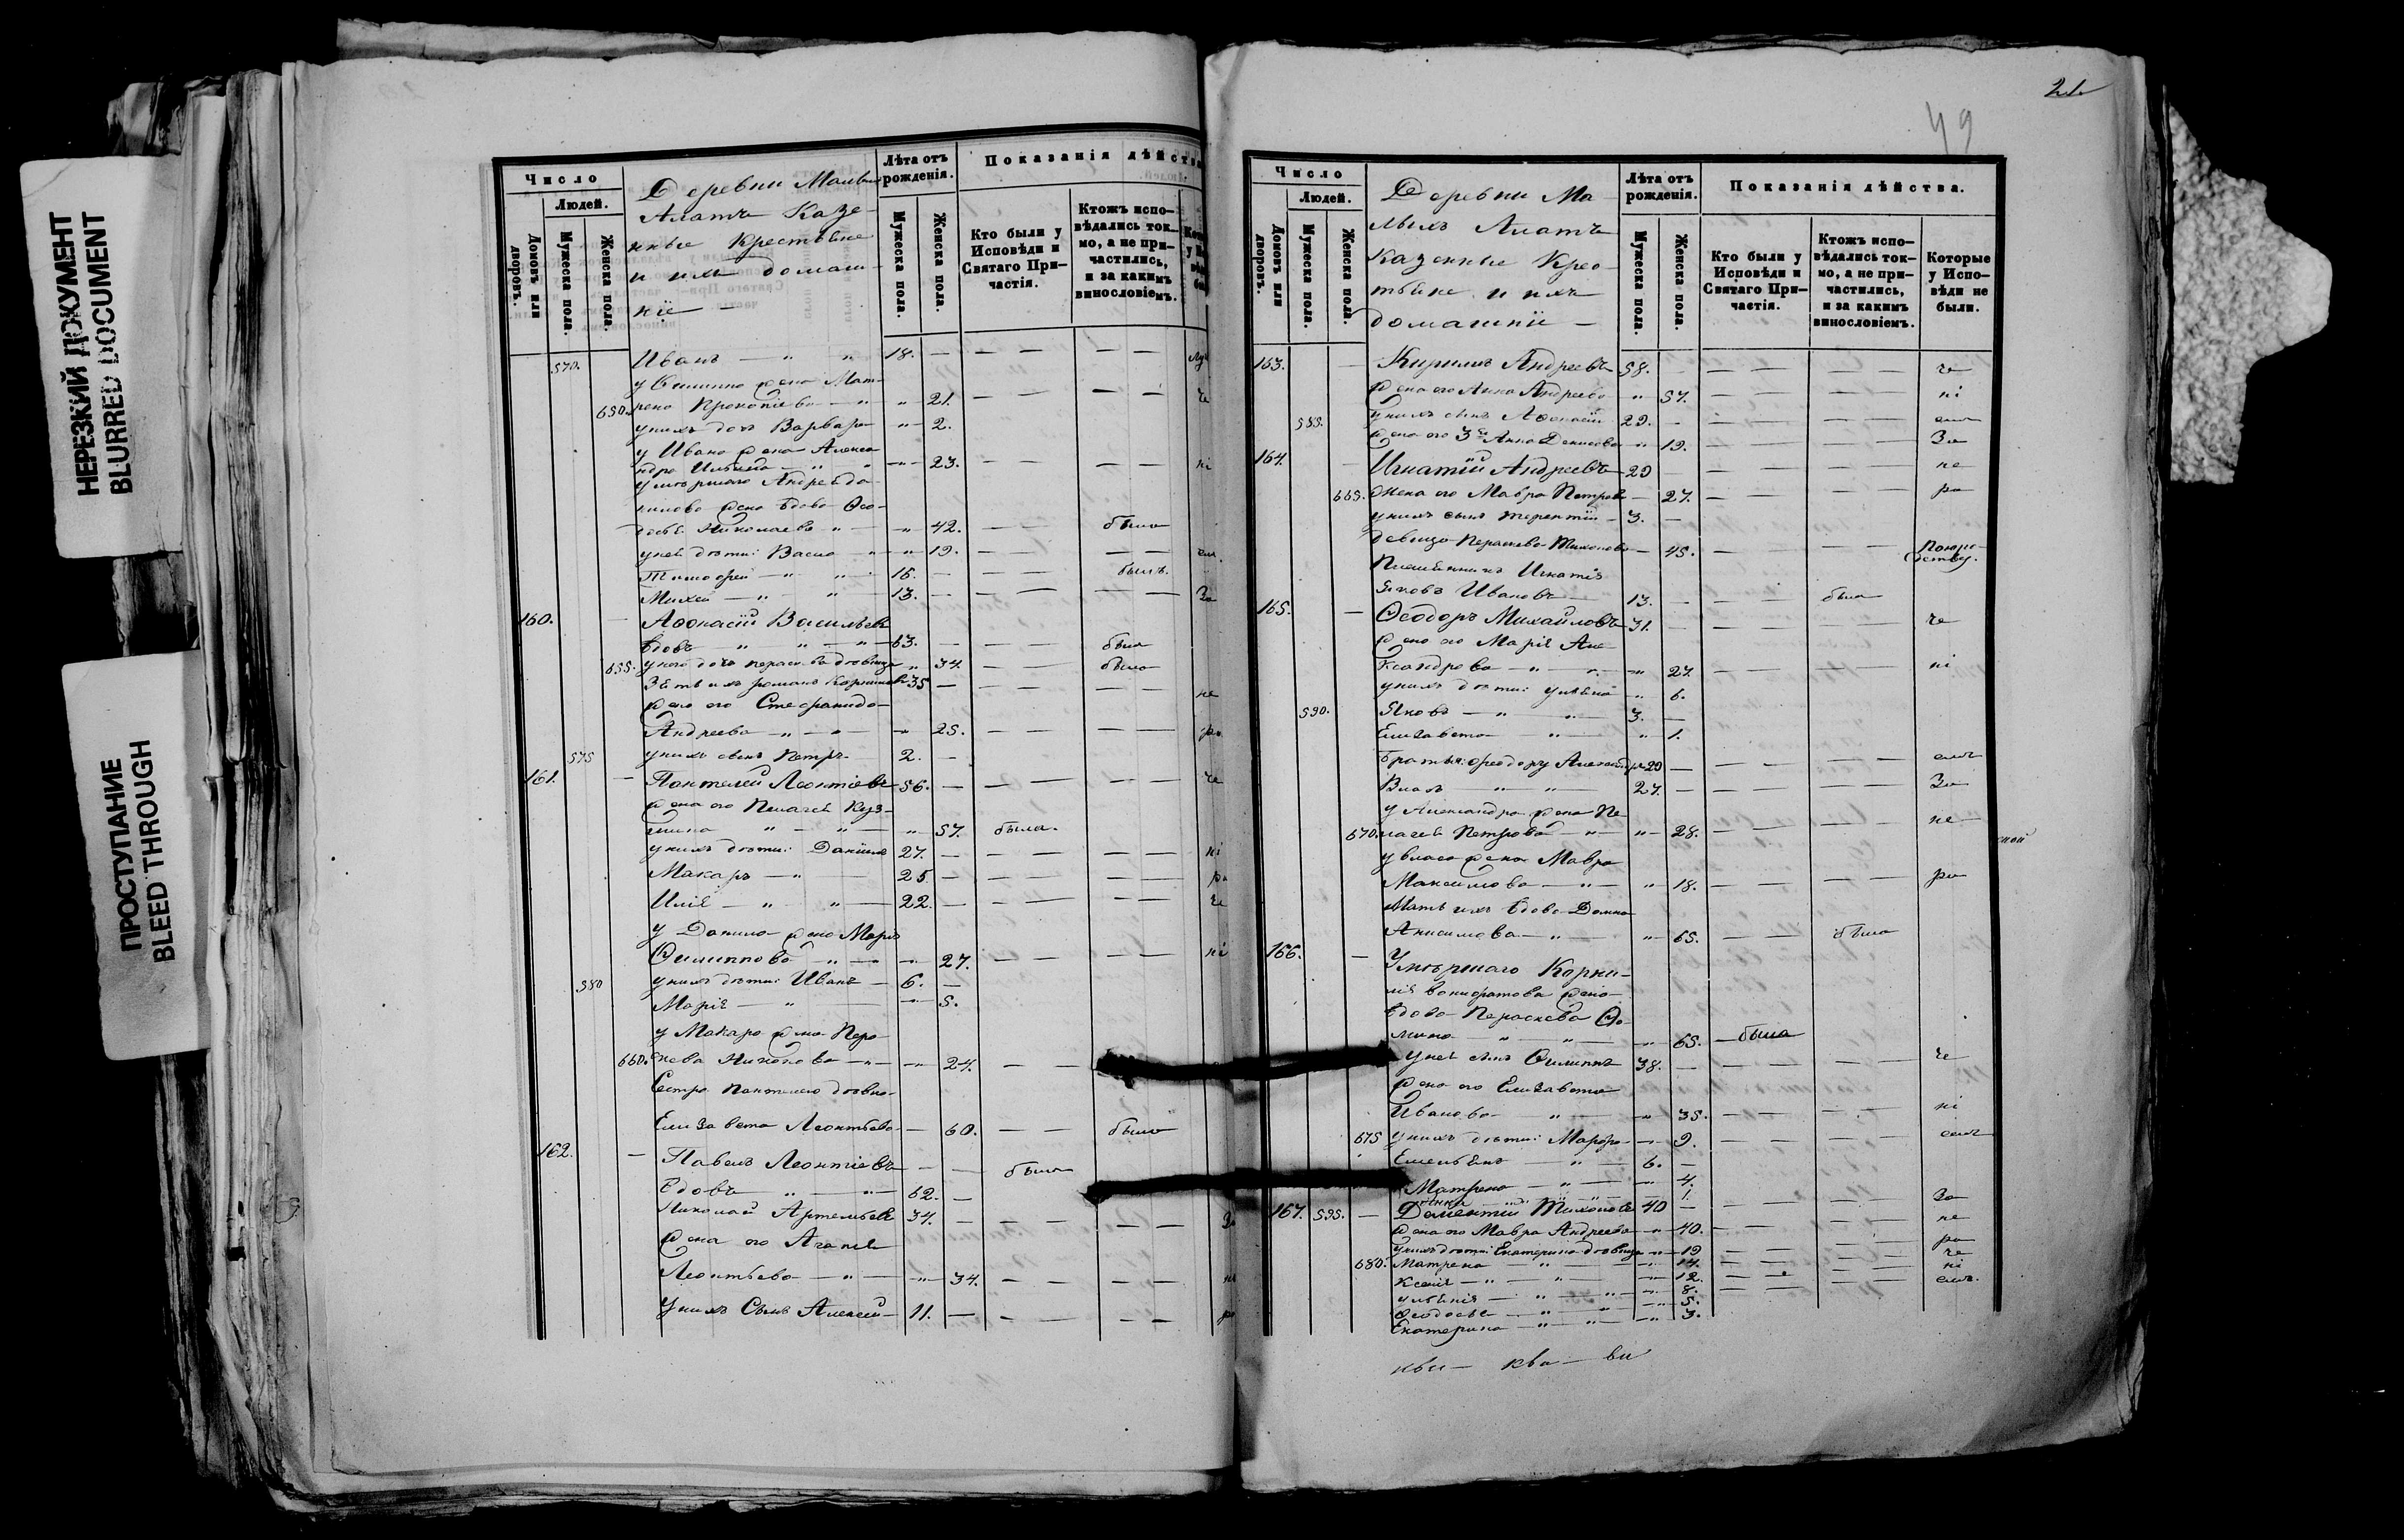 НЕРЕЗКИЙ ДОКУМЕНТ
BLURRED DOCUMENT
ПРОСТУПАНИЕ
BLEED THROUGH
Число
Людей.
Домовъ или дворовъ.
Мужеска пола.
Женска пола.
Деревни Малыхъ
Алатъ Казе-
нные Крестьяне
и ихъ домаш-
нiе —
Лѣта отъ рожденiя.
Мужеска пола.
Женска пола.
Показанiя дѣйства
Кто были у Исповѣди и Святаго При-частiя.
Ктожъ испо-вѣдались ток-мо, а не при-частились, и за какимъ винословiемъ.
570. Иванъ — " " 18. — — — — —
у Филиппа жена Мат-
650. рена Прокопiева — " " 21. — — — — че
у нихъ дочь Варвара " 2.
у Ивана жена Алекса
ндра Ильина — " 23. — — — — нi
умершаго Андрея Да-
нилова жена вдова Ѳео-
досья Николаева " — " 42. — — была
у ней дѣти: Васса " — " 19. — — — —
Тимофей — " " 16. — — — былъ.
Михей — " " — 13. — — — — — За
160. — Аѳонасiй Васильевъ
вдовъ " " — " 63. — — — былъ
655. у него дочь Параскева дѣвица " 34. — — была
Зять ихъ Романъ Корниловъ 35 — — — — — не
жена его Стефанида
Андреева — " — " — " 25. — — — — ра
575 у нихъ сынъ Петръ — 2. —
161. — Пантелей Леонтiевъ 56. — — — — — че
жена его Пелагея Куз-
мина " — " — " 57. была.
у нихъ дѣти: Данiилъ 27. — — — — — нi
Макаръ — " — 25. — — — — — ра
Илiя — " " — 22. — — — — — че
у Данила жена Марiя
Филиппова " — " — " 27. — — — — нi
580 у нихъ дѣти: Иванъ — 6. —
Марiя — " — " 5.
у Макара жена Пара-
660. скева Никонова — " — " 24. — —
Сестра Пантелею дѣвка
Елизавета Леонтьева — 60. — — была
162. — Павелъ Леонтiевъ — — былъ
вдовъ " — " — 62. —
Николай Артемьевъ 34. — — — — — За
жена его Агапiя
Леонтьева — " — " 34. — — — — не
у нихъ Сынъ Алексей — 11. — — — — — ра
21.
49
Число
Людей.
Домовъ или дворовъ.
Мужеска пола.
Женска пола.
Деревни Ма-
лыхъ Алатъ
Казенные Крес-
тьяне и ихъ
домашнiи —
Лѣта отъ рожденiя.
Мужеска пола.
Женска пола.
Показанiя дѣйства.
Кто были у Исповѣди и Святаго При-частiя.
Ктожъ испо-вѣдались ток-мо, а не при-частились, и за какимъ винословiемъ.
Которые у Испо-вѣди не были.
163. — Кирилъ Андреевъ 58. — — — — — че
жена его Анна Андреева " 57. — — — — нi
585. у нихъ сынъ Аѳонасiй 29. — — — — — емъ
жена его 3я Анна Денисова " 19. — — — — За
164. — Игнатiй Андреевъ 29 — — — — — не
665. Жена его Мавра Петрова — 27. — — — — ра
у нихъ сынъ Терентiй 3. —
девица Параскева Тихонова — 45. — — — —
Племянникъ Игнатiя
Яковъ Ивановъ — 13. — — — былъ
165. — Ѳеодоръ Михайловъ 31. — — — — — че
жена его Марiя Але-
ксандрова — " — " 27. — — — — нi
у нихъ дѣти: Ульяна " 6.
590. Яковъ — " — " 3. —
Елизавета — " — " 1.
Братья Ѳеодору Александръ 29 — — — — — емъ
Власъ " " — 27. — — — — — За
у Александра жена Пе-
670. лагея Петрова — " — " 28. — — — — не
у Власа жена Мавра
Максимова — " — " 18. — — — — ра
Мать ихъ вдова Домна
Анисимова — " — " 65. — — была
166. — Умершаго Корни-
лiя Вонифатова жена
вдова Параскева Ѳо-
мина — " — " 65. — была
у ней сынъ Филиппъ 38. — — — — — че
жена его Елизавета
Иванова — " — " 35. — — — — нi
675 у нихъ дѣти: Марфа — " 9. — — — — емъ
Емельянъ — " — 6. —
Матрена — " — " 4.
Анна " " — 1.
167. 595. — Доментiй Тихоновъ 40 — — — — — За
жена его Мавра Андреева — " 40. — — — — не
у нихъ дѣти: Екатерина дѣвица — " 19 — — — — ра
680. Матрена — " — " 14. — — — — че
Ксенiя — " — " — " 12. — — — — нi
Ульянiя — " — " 8. — — — — емъ.
Ѳеодосья — " — " 5.
Екатерина — " — " — " 3.